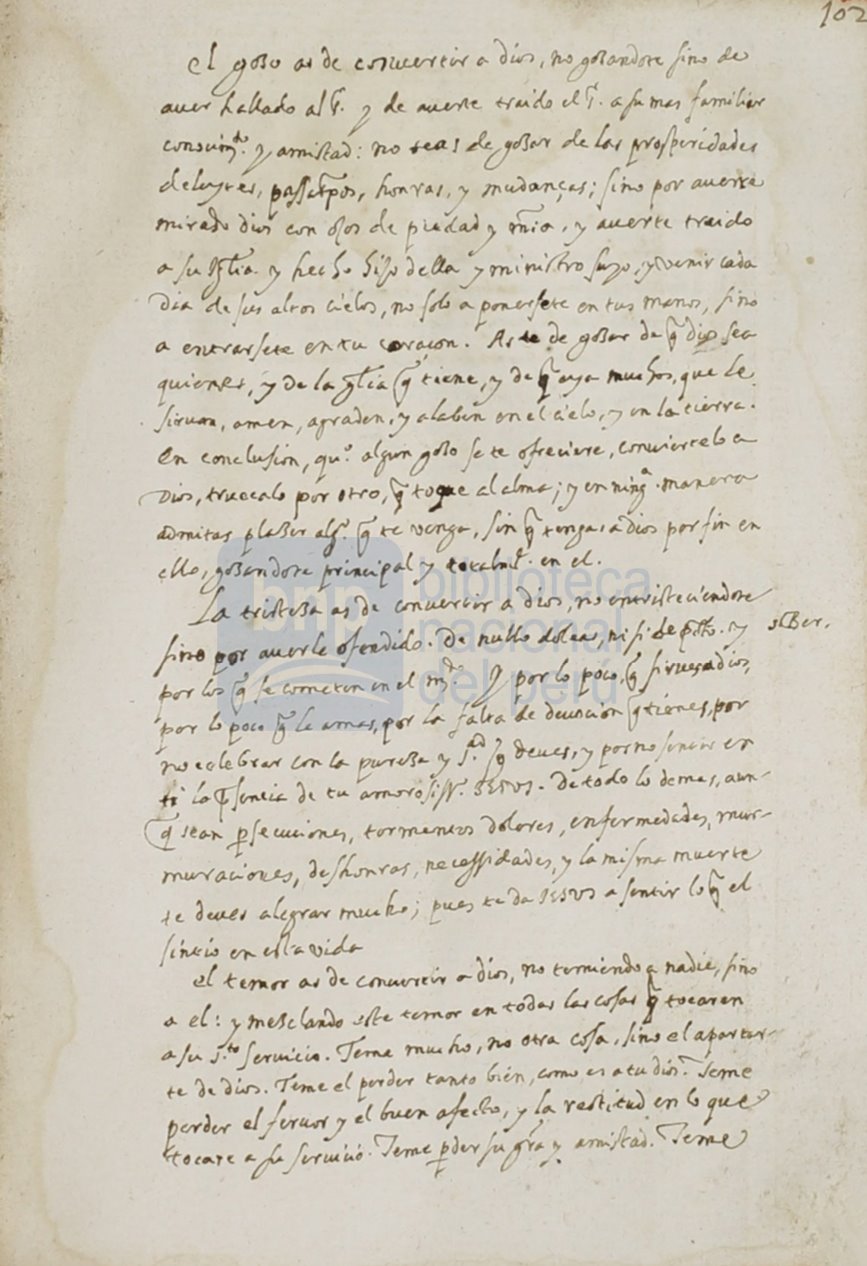 102
El gozo as de conuertir a dios, no gozandote sino de
auer hallado al S.r y de auerte traido el S.r a su mas familiar
conocim.to y amistad: no teas de gozar de las prosperidades
deleytes, passatpos, honras, y mudanças; sino por auerte
mirado dios con ojos de piedad y mia, y auerte traido
a su Iglia y hecho hijo della y ministro suyo, y venir cada
dia de sus altos cielos, no solo a ponersete en tus manos, sino
a entrarsete en tu coraçon. As te de gozar de q dios sea
quien es, y de la glia q tiene, y de q aya muchos, que le
siruan, amen, agraden, y alaben en el cielo, y en la tierra.
En conclusion, qu.o algun gozo se te ofreciere, conuiertelo a
Dios, truecalo por otro, q toque al alma; y en ning.a manera
admitas plazer alg.o q te venga, sin q tenga a dios por fin en
ello, gozandote principal y totalm.te en el.
La tristeza as de conuertir a dios, no entristeciendote
sino por auerle ofendido. De nullo doleas, nisi de pcto. y
s Ber.
por los q se cometen en el m.do Y por lo poco, q sirues a dios,
por lo poco q le amas, por la falta de deuocion q tienes, por
no celebrar con la pureza y s.ad q deues, y por no sentir en
ti la psencia de tu amorosiss.o Jesus. De todo lo demas, aun-
q sean psecuciones, tormentos dolores, enfermedades, mur-
muraciones, deshonras, necessidades, y la misma muerte
te deues alegrar mucho; pues te da Jesus a sentir lo q el
sintio en esta vida
el temor as de conuertir a dios, no temiendo a nadie, sino
a el: y mezclando este temor en todas las cosas q tocaren
a su s.to seruicio. Teme mucho, no otra cosa, sino el apartar-
te de dios. Teme el perder tanto bien, como es a tu dios. Teme
perder el feruor y el buen afecto, y la rectitud en lo que
tocare a su seruicio. Teme pder su gra y amistad. Teme
biblioteca
nacional
del perú
bnp